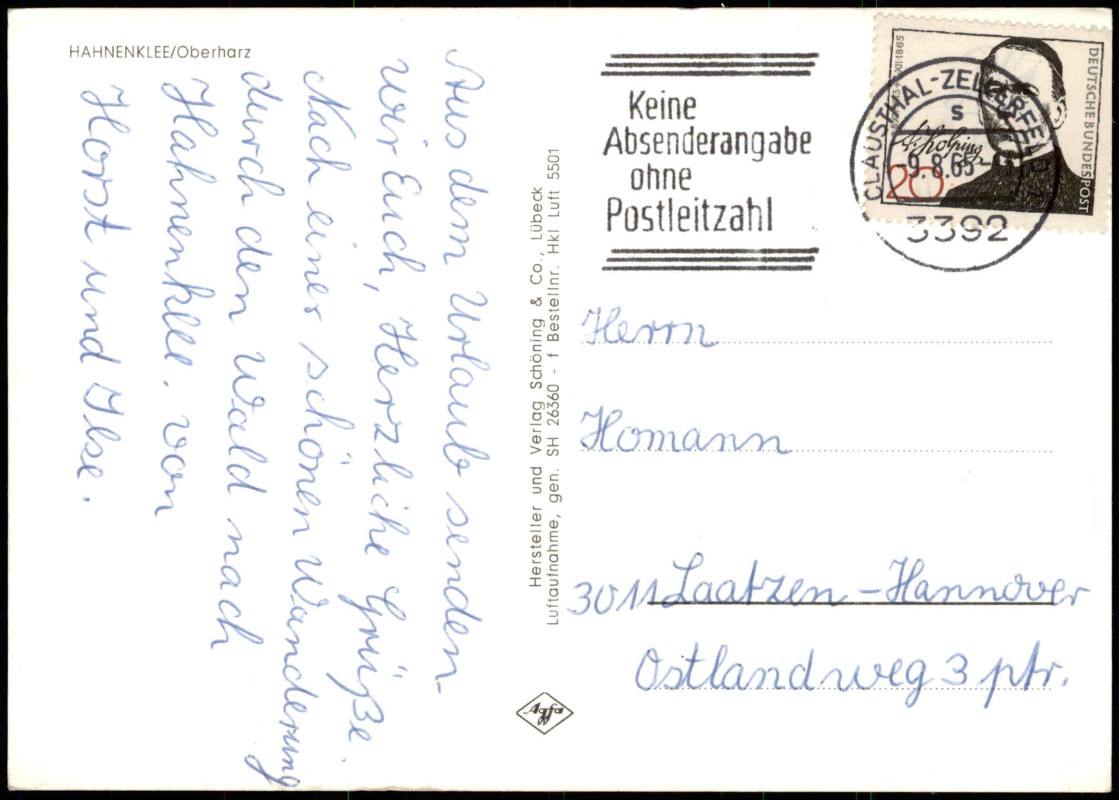 HAHNENKLEE/Oberharz
Aus dem Urlaub senden
wir Euch, Herzliche Grüße.
Nach einer schönen Wanderung
durch den Wald nach
Hahnenklee. von
Horst und Ilse.
Hersteller und Verlag Schöning & Co., Lübeck
Luftaufnahme, gen. SH 26360 - f Bestellnr. Hkl Luft 5501
Agfa
Keine
Absenderangabe
ohne
Postleitzahl
CLAUSTHAL-ZELLERFELD
s
9.8.65
3392
DEUTSCHE BUNDESPOST
Kolping
20
1865
Herrn
Homann
3011 Laatzen-Hannover
Ostlandweg 3 ptr.